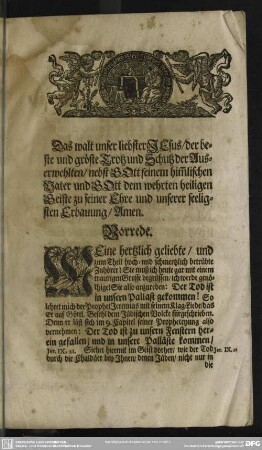 Das walt unser liebster JEsus/ der be-
ste und gröste Trotz und Schutz der Aus-
erwehlten/ nebst GOtt seinem him̃lischen
Vater und GOtt dem wehrten heiligen
Geiste zu seiner Ehre und unserer seelig-
sten Erbauung/ Amen.
Vorrede.
MEine hertzlich geliebte/ und
zum Theil hoch- und schmertzlich betrübte
Zuhörer! Sie muß ich heute gar mit einem
traurigen Grusse begrüssen/ ich werde genö-
thiget Sie also anzureden: Der Tod ist
in unsern Pallast gekommen! So
lehret mich der Prophet Jeremias mit seinem Klag-Liede das
Er auf Göttl. Befehl dem Jüdischen Volcke fürgeschrieben.
Denn er läst sich im 9. Capitel seiner Prophezeyung also
vernehmen: Der Tod ist zu unsern Fenstern her-
ein gefallen/ und in unsere Palläste kommen/
Jer. IX. 21. Siehet hiermit im Geist vorher/ wie der Tod Jer. IX. 21
durch die Chaldäer bey Ihnen/ denen Jüden/ nicht nur in
die